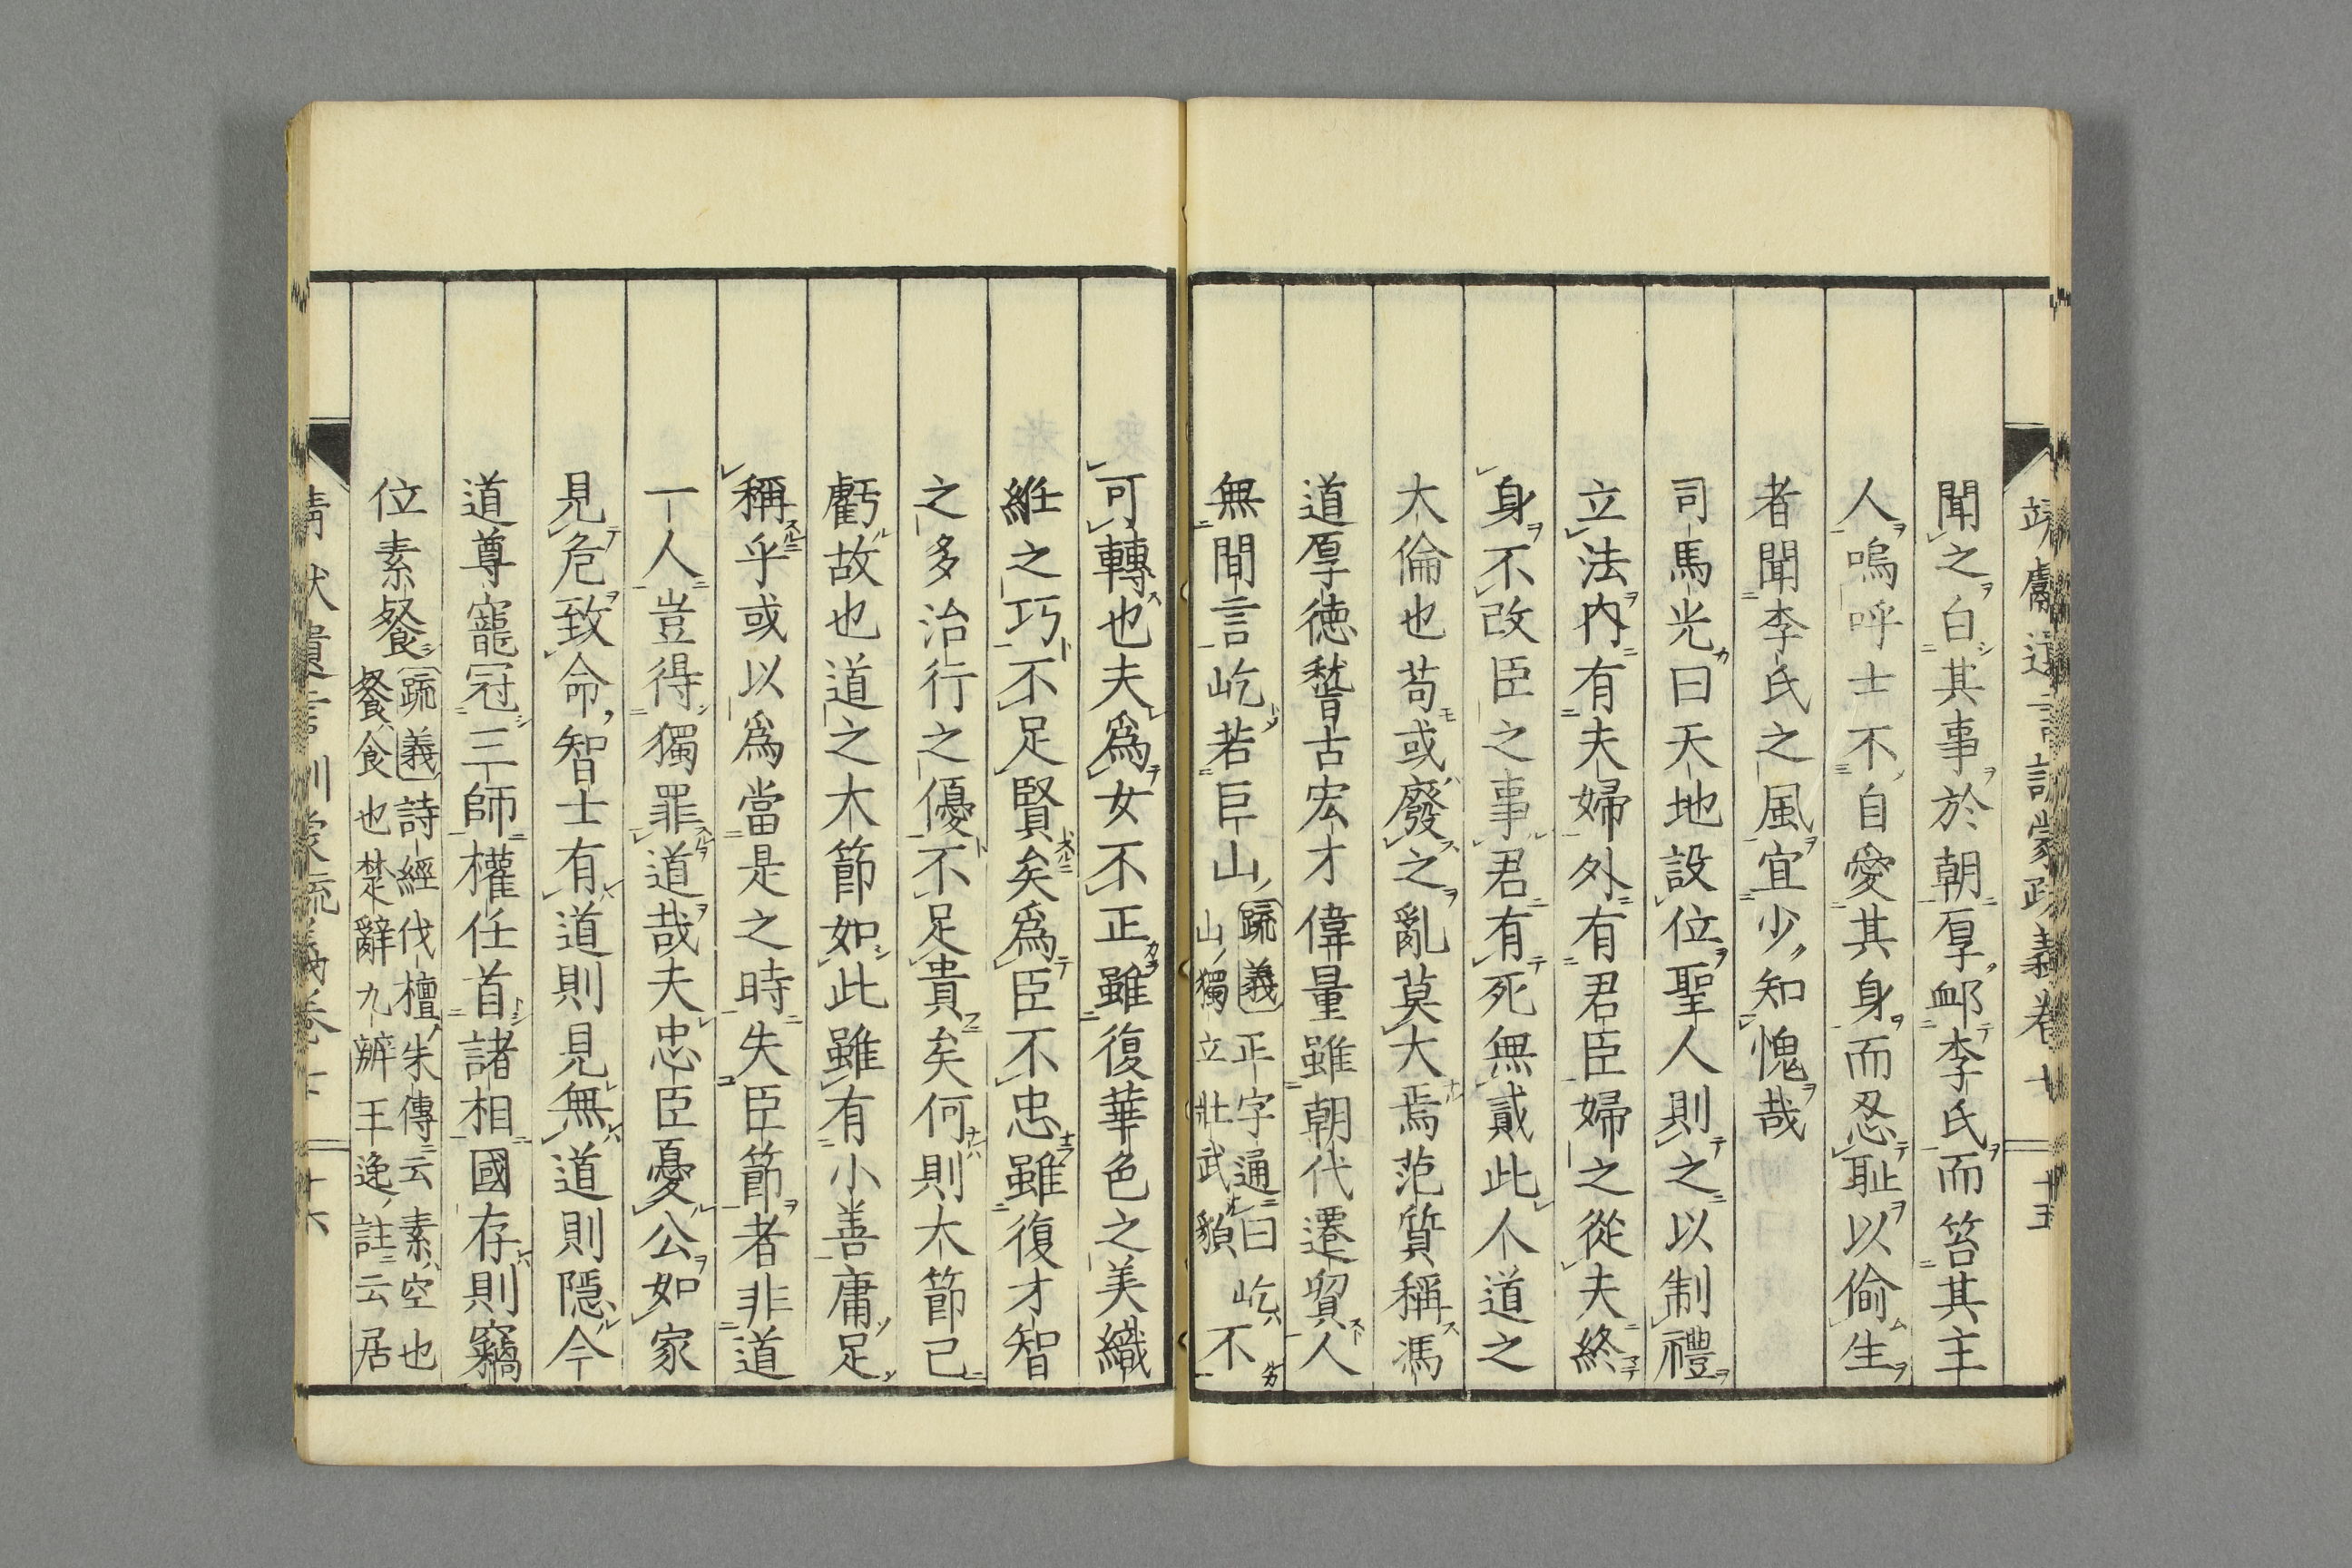 聞之白其事於朝厚䘏李氏而笞其主
人嗚呼士不自愛其身而忍耻以偷生
者聞李氏之風宜少知愧哉
司馬光曰天地設位聖人則之以制禮
立法内有夫婦外有君臣婦之從夫終
身不改臣之事君有死無貳此人道之
大倫也苟或廢之亂莫大焉范質稱馮
道厚徳稽古宏才偉量雖朝代遷貿人
無間言屹若巨山疏義正字通曰屹
山獨立壯武貌不
可轉也夫爲女不正雖復華色之美織
紝之巧不足賢矣爲臣不忠雖復才智
之多治行之優不足貴矣何則大節已
虧故也道之大節如此雖有小善庸足
稱乎或以爲當是之時失臣節者非道
一人豈得獨罪道哉夫忠臣憂公如家
見危致命智士有道則見無道則隱今
道尊寵冠三師權任首諸相國存則竊
位素餐疏義詩經伐檀朱傳云素空也
餐食也楚辭九辨王逸註云居